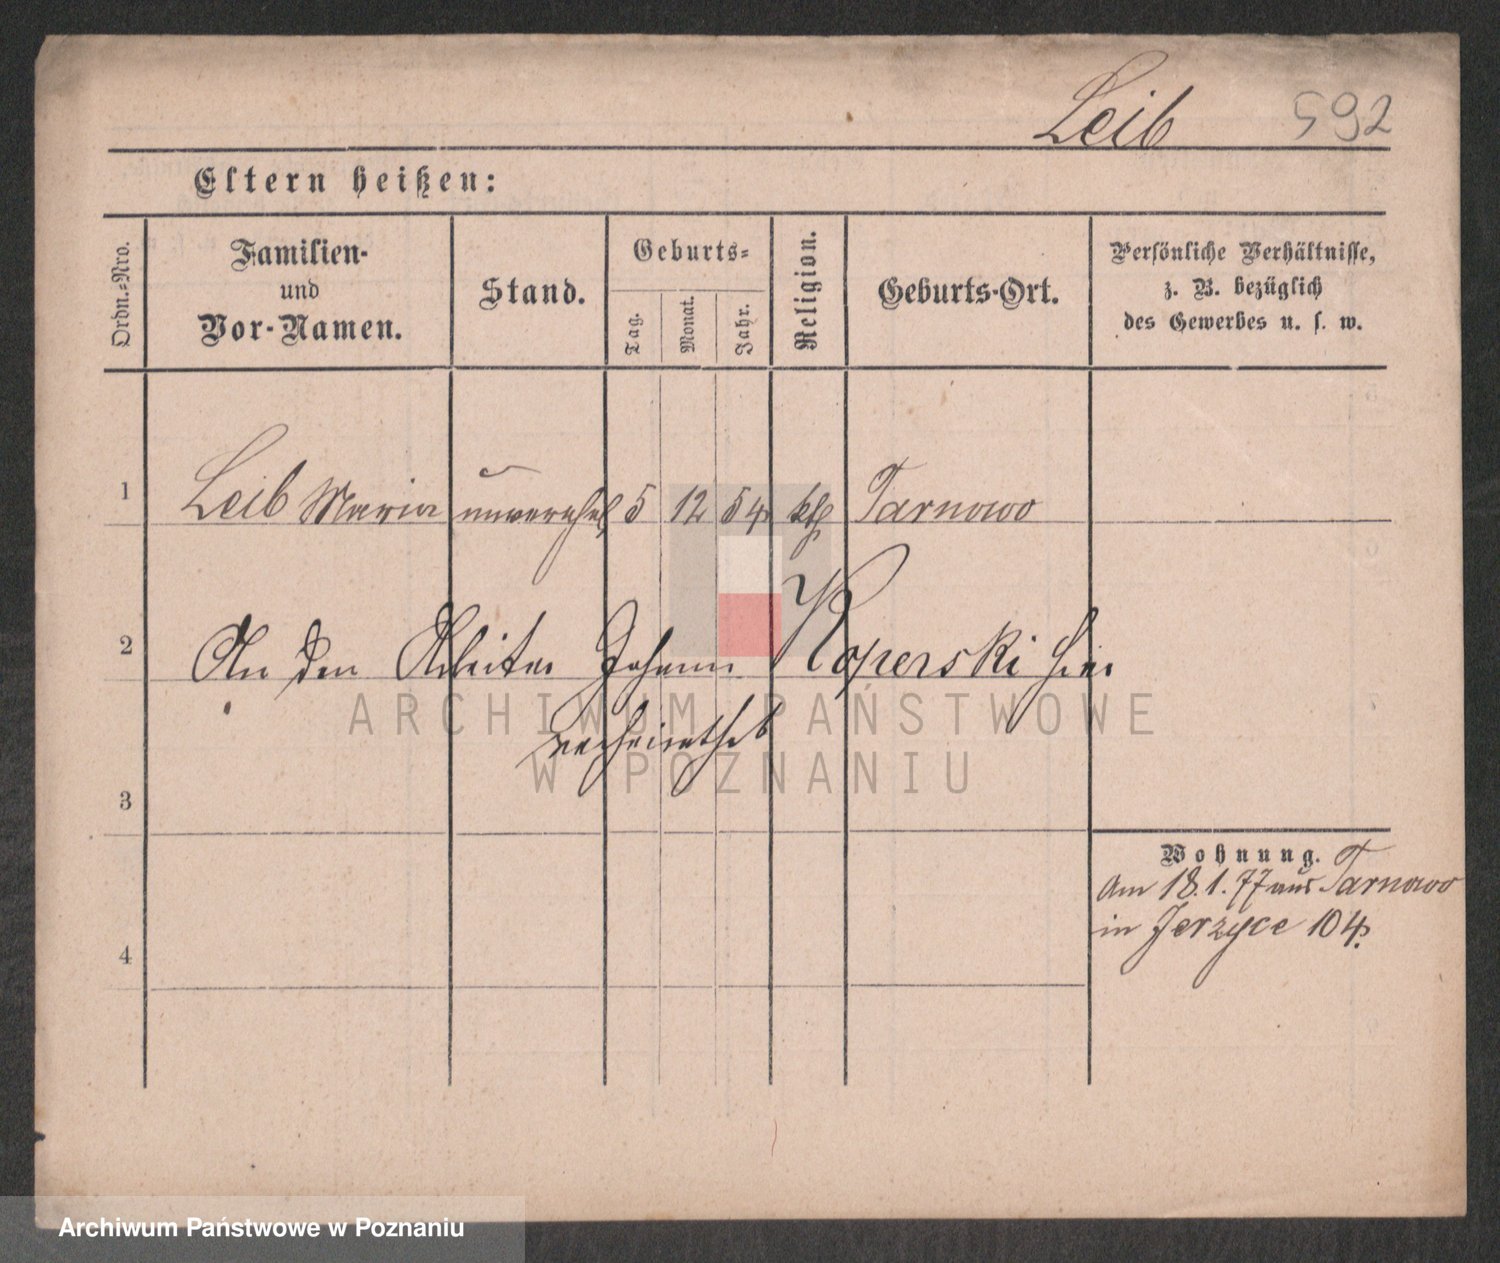 Leib 592
Eltern heißen:
Ordn.-Nro.
Familien-
und
Vor-Namen.
Stand.
Geburts-
Tag.
Monat.
Jahr.
Religion.
Geburts-Ort.
Persönliche Verhältnisse,
z. B. bezüglich
des Gewerbes u. s. w.
1 Leib Maria unverehel 5 12 54 kth Tarnowo
2 An den Arbeiter Johann Koperski hier
verheirathet
3
4
Wohnung.
Am 18.1.77 aus Tarnowo
in Jerzyce 104.
ARCHIWUM PAŃSTWOWE
W POZNANIU
Archiwum Państwowe w Poznaniu